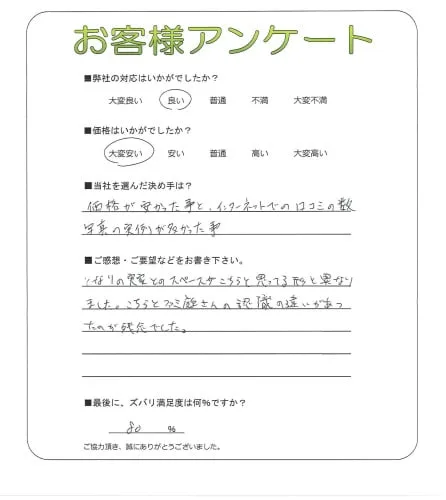 お客様アンケート
■弊社の対応はいかがでしたか?
大変良い 良い 普通 不満 大変不満
■価格はいかがでしたか?
大変安い 安い 普通 高い 大変高い
■当社を選んだ決め手は?
価格が安かった事と、インターネットでの口コミの数
写真の実例が多かった事
■ご感想・ご要望などをお書き下さい。
となりの実家とのスペースがこちらと思ってる形と異なり
ました。こちらとファミ庭さんの認識の違いがあっ
たのが残念でした。
■最後に、ズバリ満足度は何%ですか?
80 %
ご協力頂き、誠にありがとうございました。